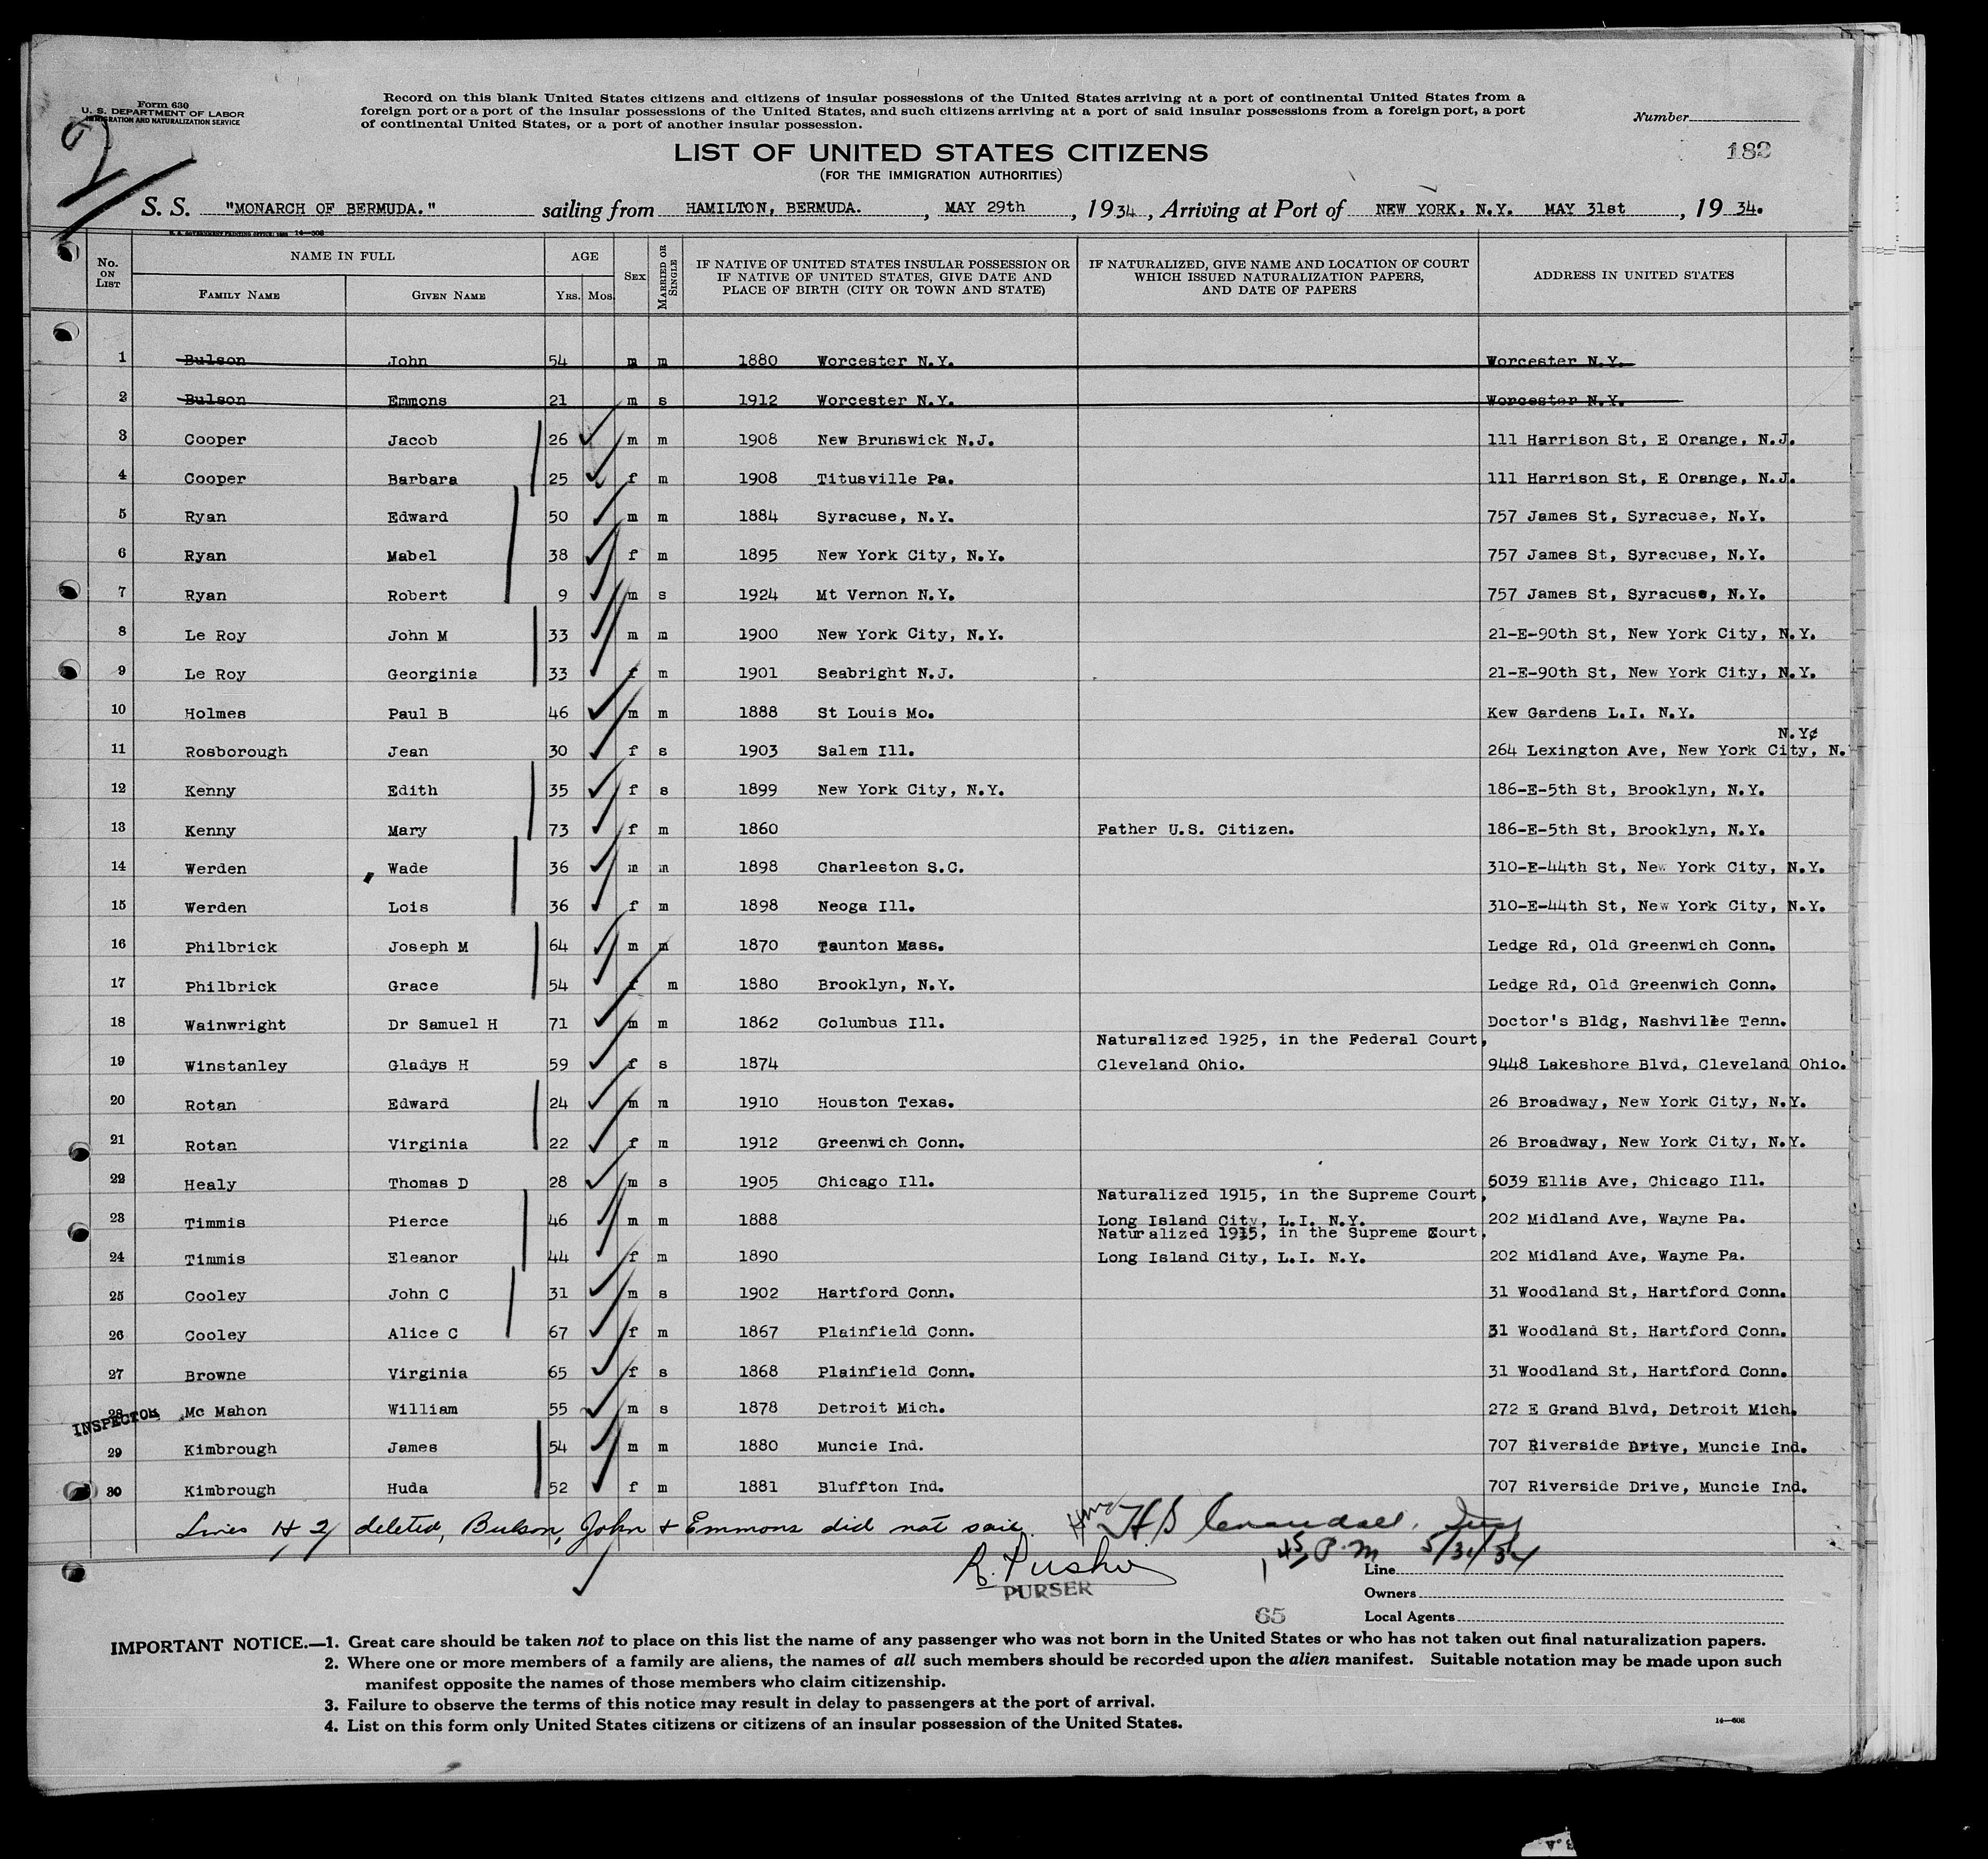 Form 630
U. S. DEPARTMENT OF LABOR
IMMIGRATION AND NATURALIZATION SERVICE
2
Record on this blank United States citizens and citizens of insular possessions of the United States arriving at a port of continental United States from a
foreign port or a port of the insular possessions of the United States, and such citizens arriving at a port of said insular possessions from a foreign port, a port
of continental United States, or a port of another insular possession.
Number
LIST OF UNITED STATES CITIZENS
(FOR THE IMMIGRATION AUTHORITIES)
S. S. "MONARCH OF BERMUDA." sailing from HAMILTON, BERMUDA. , MAY 29th , 1934 , Arriving at Port of NEW YORK, N.Y. MAY 31st , 19 34.
No. ON LIST NAME IN FULL FAMILY NAME GIVEN NAME AGE YRS. MOS. SEX MARRIED OR SINGLE IF NATIVE OF UNITED STATES INSULAR POSSESSION OR IF NATIVE OF UNITED STATES, GIVE DATE AND PLACE OF BIRTH (CITY OR TOWN AND STATE) IF NATURALIZED, GIVE NAME AND LOCATION OF COURT WHICH ISSUED NATURALIZATION PAPERS, AND DATE OF PAPERS ADDRESS IN UNITED STATES
1 Bulson John 54 m m 1880 Worcester N.Y. Worcester N.Y.
2 Bulson Emmons 21 m s 1912 Worcester N.Y. Worcester N.Y.
3 Cooper Jacob 26 m m 1908 New Brunswick N.J. 111 Harrison St, E Orange, N.J.
4 Cooper Barbara 25 f m 1908 Titusville Pa. 111 Harrison St, E Orange, N.J.
5 Ryan Edward 50 m m 1884 Syracuse, N.Y. 757 James St, Syracuse, N.Y.
6 Ryan Mabel 38 f m 1895 New York City, N.Y. 757 James St, Syracuse, N.Y.
7 Ryan Robert 9 m s 1924 Mt Vernon N.Y. 757 James St, Syracuse, N.Y.
8 Le Roy John M 33 m m 1900 New York City, N.Y. 21-E-90th St, New York City, N.Y.
9 Le Roy Georginia 33 f m 1901 Seabright N.J. 21-E-90th St, New York City, N.Y.
10 Holmes Paul B 46 m m 1888 St Louis Mo. Kew Gardens L.I. N.Y.
N.Y¢
11 Rosborough Jean 30 f s 1903 Salem Ill. 264 Lexington Ave, New York City, N.
12 Kenny Edith 35 f s 1899 New York City, N.Y. 186-E-5th St, Brooklyn, N.Y.
13 Kenny Mary 73 f m 1860 Father U.S. Citizen. 186-E-5th St, Brooklyn, N.Y.
14 Werden Wade 36 m m 1898 Charleston S.C. 310-E-44th St, New York City, N.Y.
15 Werden Lois 36 f m 1898 Neoga Ill. 310-E-44th St, New York City, N.Y.
16 Philbrick Joseph M 64 m m 1870 Taunton Mass. Ledge Rd, Old Greenwich Conn.
17 Philbrick Grace 54 f m 1880 Brooklyn, N.Y. Ledge Rd, Old Greenwich Conn.
18 Wainwright Dr Samuel H 71 m m 1862 Columbus Ill. Doctor's Bldg, Nashville Tenn.
Naturalized 1925, in the Federal Court,
19 Winstanley Gladys H 59 f s 1874 Cleveland Ohio. 9448 Lakeshore Blvd, Cleveland Ohio.
20 Rotan Edward 24 m m 1910 Houston Texas. 26 Broadway, New York City, N.Y.
21 Rotan Virginia 22 f m 1912 Greenwich Conn. 26 Broadway, New York City, N.Y.
22 Healy Thomas D 28 m s 1905 Chicago Ill. 6039 Ellis Ave, Chicago Ill.
Naturalized 1915, in the Supreme Court,
23 Timmis Pierce 46 m m 1888 Long Island City, L.I. N.Y. 202 Midland Ave, Wayne Pa.
Naturalized 1915, in the Supreme Court,
24 Timmis Eleanor 44 f m 1890 Long Island City, L.I. N.Y. 202 Midland Ave, Wayne Pa.
25 Cooley John C 31 m s 1902 Hartford Conn. 31 Woodland St, Hartford Conn.
26 Cooley Alice C 67 f m 1867 Plainfield Conn. 31 Woodland St, Hartford Conn.
27 Browne Virginia 65 f s 1868 Plainfield Conn. 31 Woodland St, Hartford Conn.
28 Mc Mahon William 55 m s 1878 Detroit Mich. 272 E Grand Blvd, Detroit Mich.
INSPECTOR
29 Kimbrough James 54 m m 1880 Muncie Ind. 707 Riverside Drive, Muncie Ind.
30 Kimbrough Huda 52 f m 1881 Bluffton Ind. 707 Riverside Drive, Muncie Ind.
Lines 1 + 2 deleted, Bulson, John + Emmons did not sail.
1 45 P.M 5/31/34
PURSER
Line
Owners
65
Local Agents
IMPORTANT NOTICE.—1. Great care should be taken not to place on this list the name of any passenger who was not born in the United States or who has not taken out final naturalization papers.
2. Where one or more members of a family are aliens, the names of all such members should be recorded upon the alien manifest. Suitable notation may be made upon such
manifest opposite the names of those members who claim citizenship.
3. Failure to observe the terms of this notice may result in delay to passengers at the port of arrival.
4. List on this form only United States citizens or citizens of an insular possession of the United States.